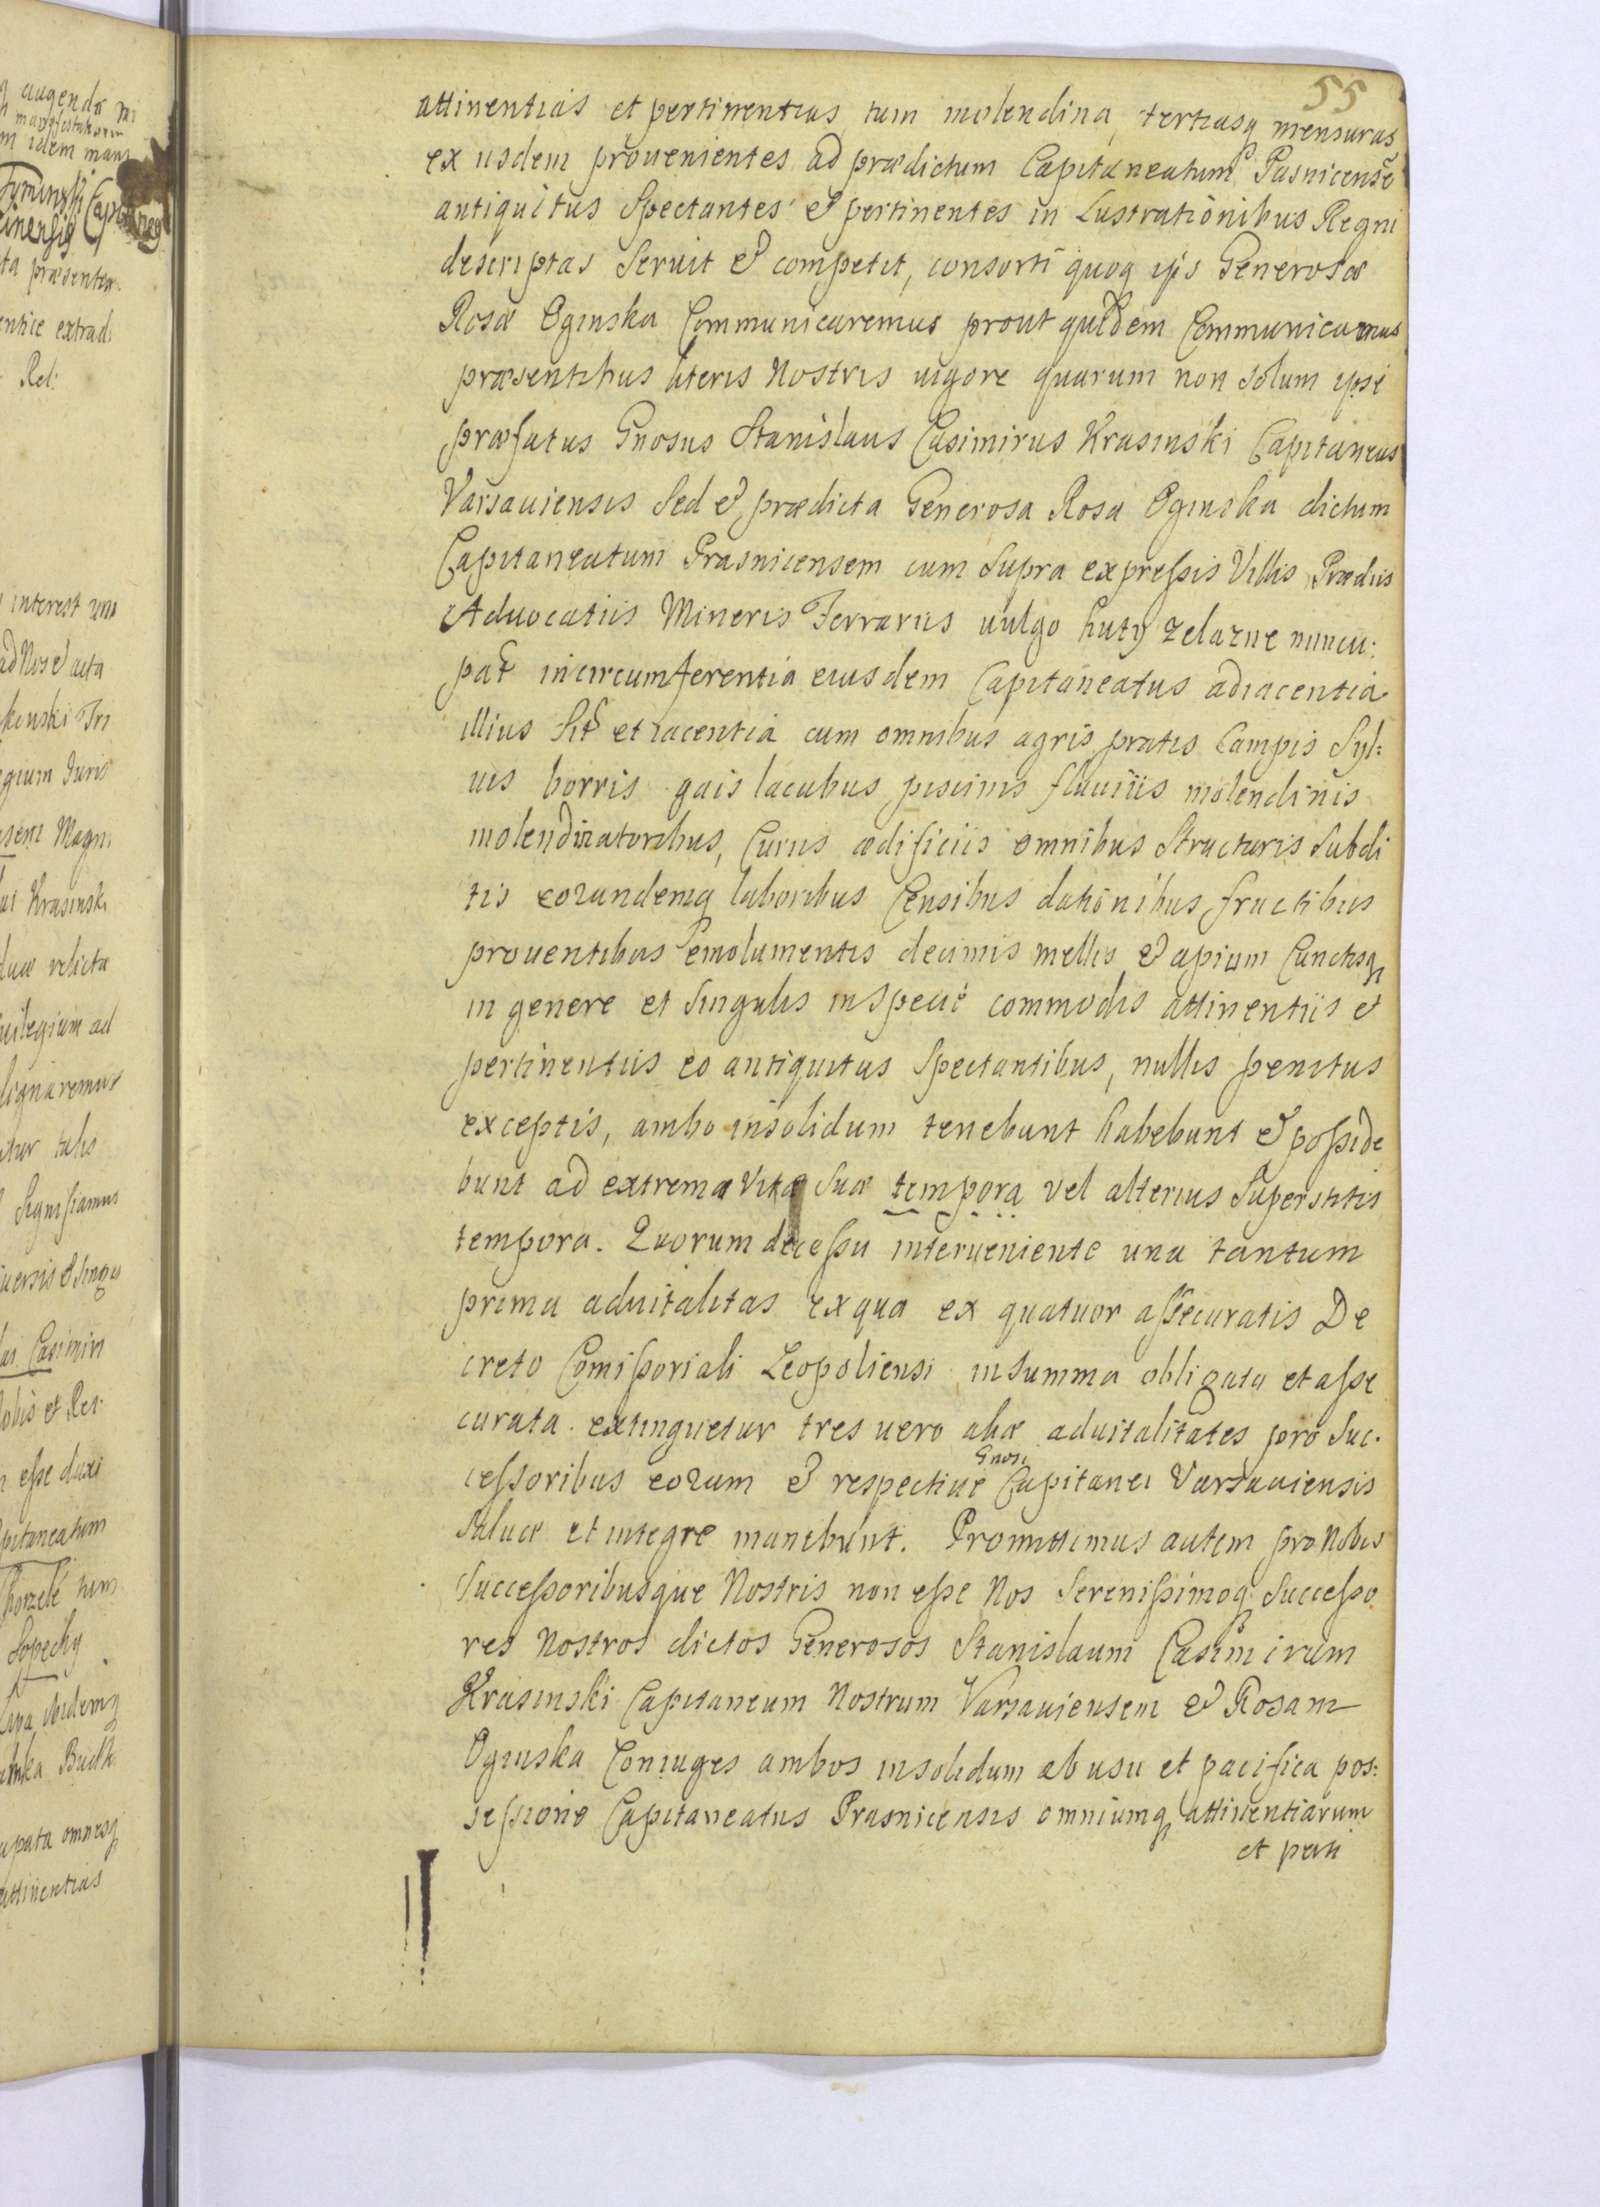 55
attinentias et pertinentias tum molendina, tertiasq mensuras
ex iisdem prouenientes ad prædictum Capitaneatum Pasnicensē
antiquitus Spectantes et pertinentes in Lustrationibus Regni
descriptas Seruit et competit, consorti quoq ipsi Generosæ
Rosæ Oginska Communicaremus prout quidem Communicamus
præsentibus literis Nostris uigore quarum non solum ipse
præfatus Gnosus Stanislaus Casimirus Krasinski Capitaneus
Varsauiensis Sed et prædicta Generosa Rosa Oginska dictum
Capitaneatum Prasnicensem cum Supra expressis Villis Prædiis
Aduocatiis Mineris Ferrariis uulgo huty zelazne nuncu:
pat in circumferentia eiusdem Capitaneatus adiacentia
illius Sit et iacentia cum omnibus agris pratis Campis Syl:
uis borris gais lacubus piscinis fluuiis molendinis
molendinatoribus, Curiis ædificiis omnibus Structuris Subdi
tis eorundemq laboribus Censibus dationibus fructibus
prouentibus emolumentis decimis mellis et apium Cunctisq
in genere et Singulis in Specie commodis attinentiis et
pertinentiis eo antiquitus Spectantibus, nullis penitus
exceptis, ambo insolidum tenebunt habebunt et posside
bunt ad extrema Vitæ Suæ tempora vel alterius Superstitis
tempora. Quorum decessu interueniente una tantum
prima aduitalitas ex qua ex quatuor assecuratis De
creto Comissoriali Leopoliensi in Summa obligata et asse
curata extinguetur tres uero aliæ aduitalitates pro Suc.
cessoribus eorum et respectiue Gnosi Capitanei Varsauiensis
Saluæ et integre manebunt. Promittimus autem pro Nobis
Successoribusque Nostris non esse Nos Serenissimoq Successo
res Nostros dictos Generosos Stanislaum Casimirum
Krasinski Capitaneum Nostrum Varsauiensem et Rosam
Oginska Coniuges ambos insolidum ab usu et pacifica pos:
sessione Capitaneatus Prasnicensis omniumq attinentiarum
et perti